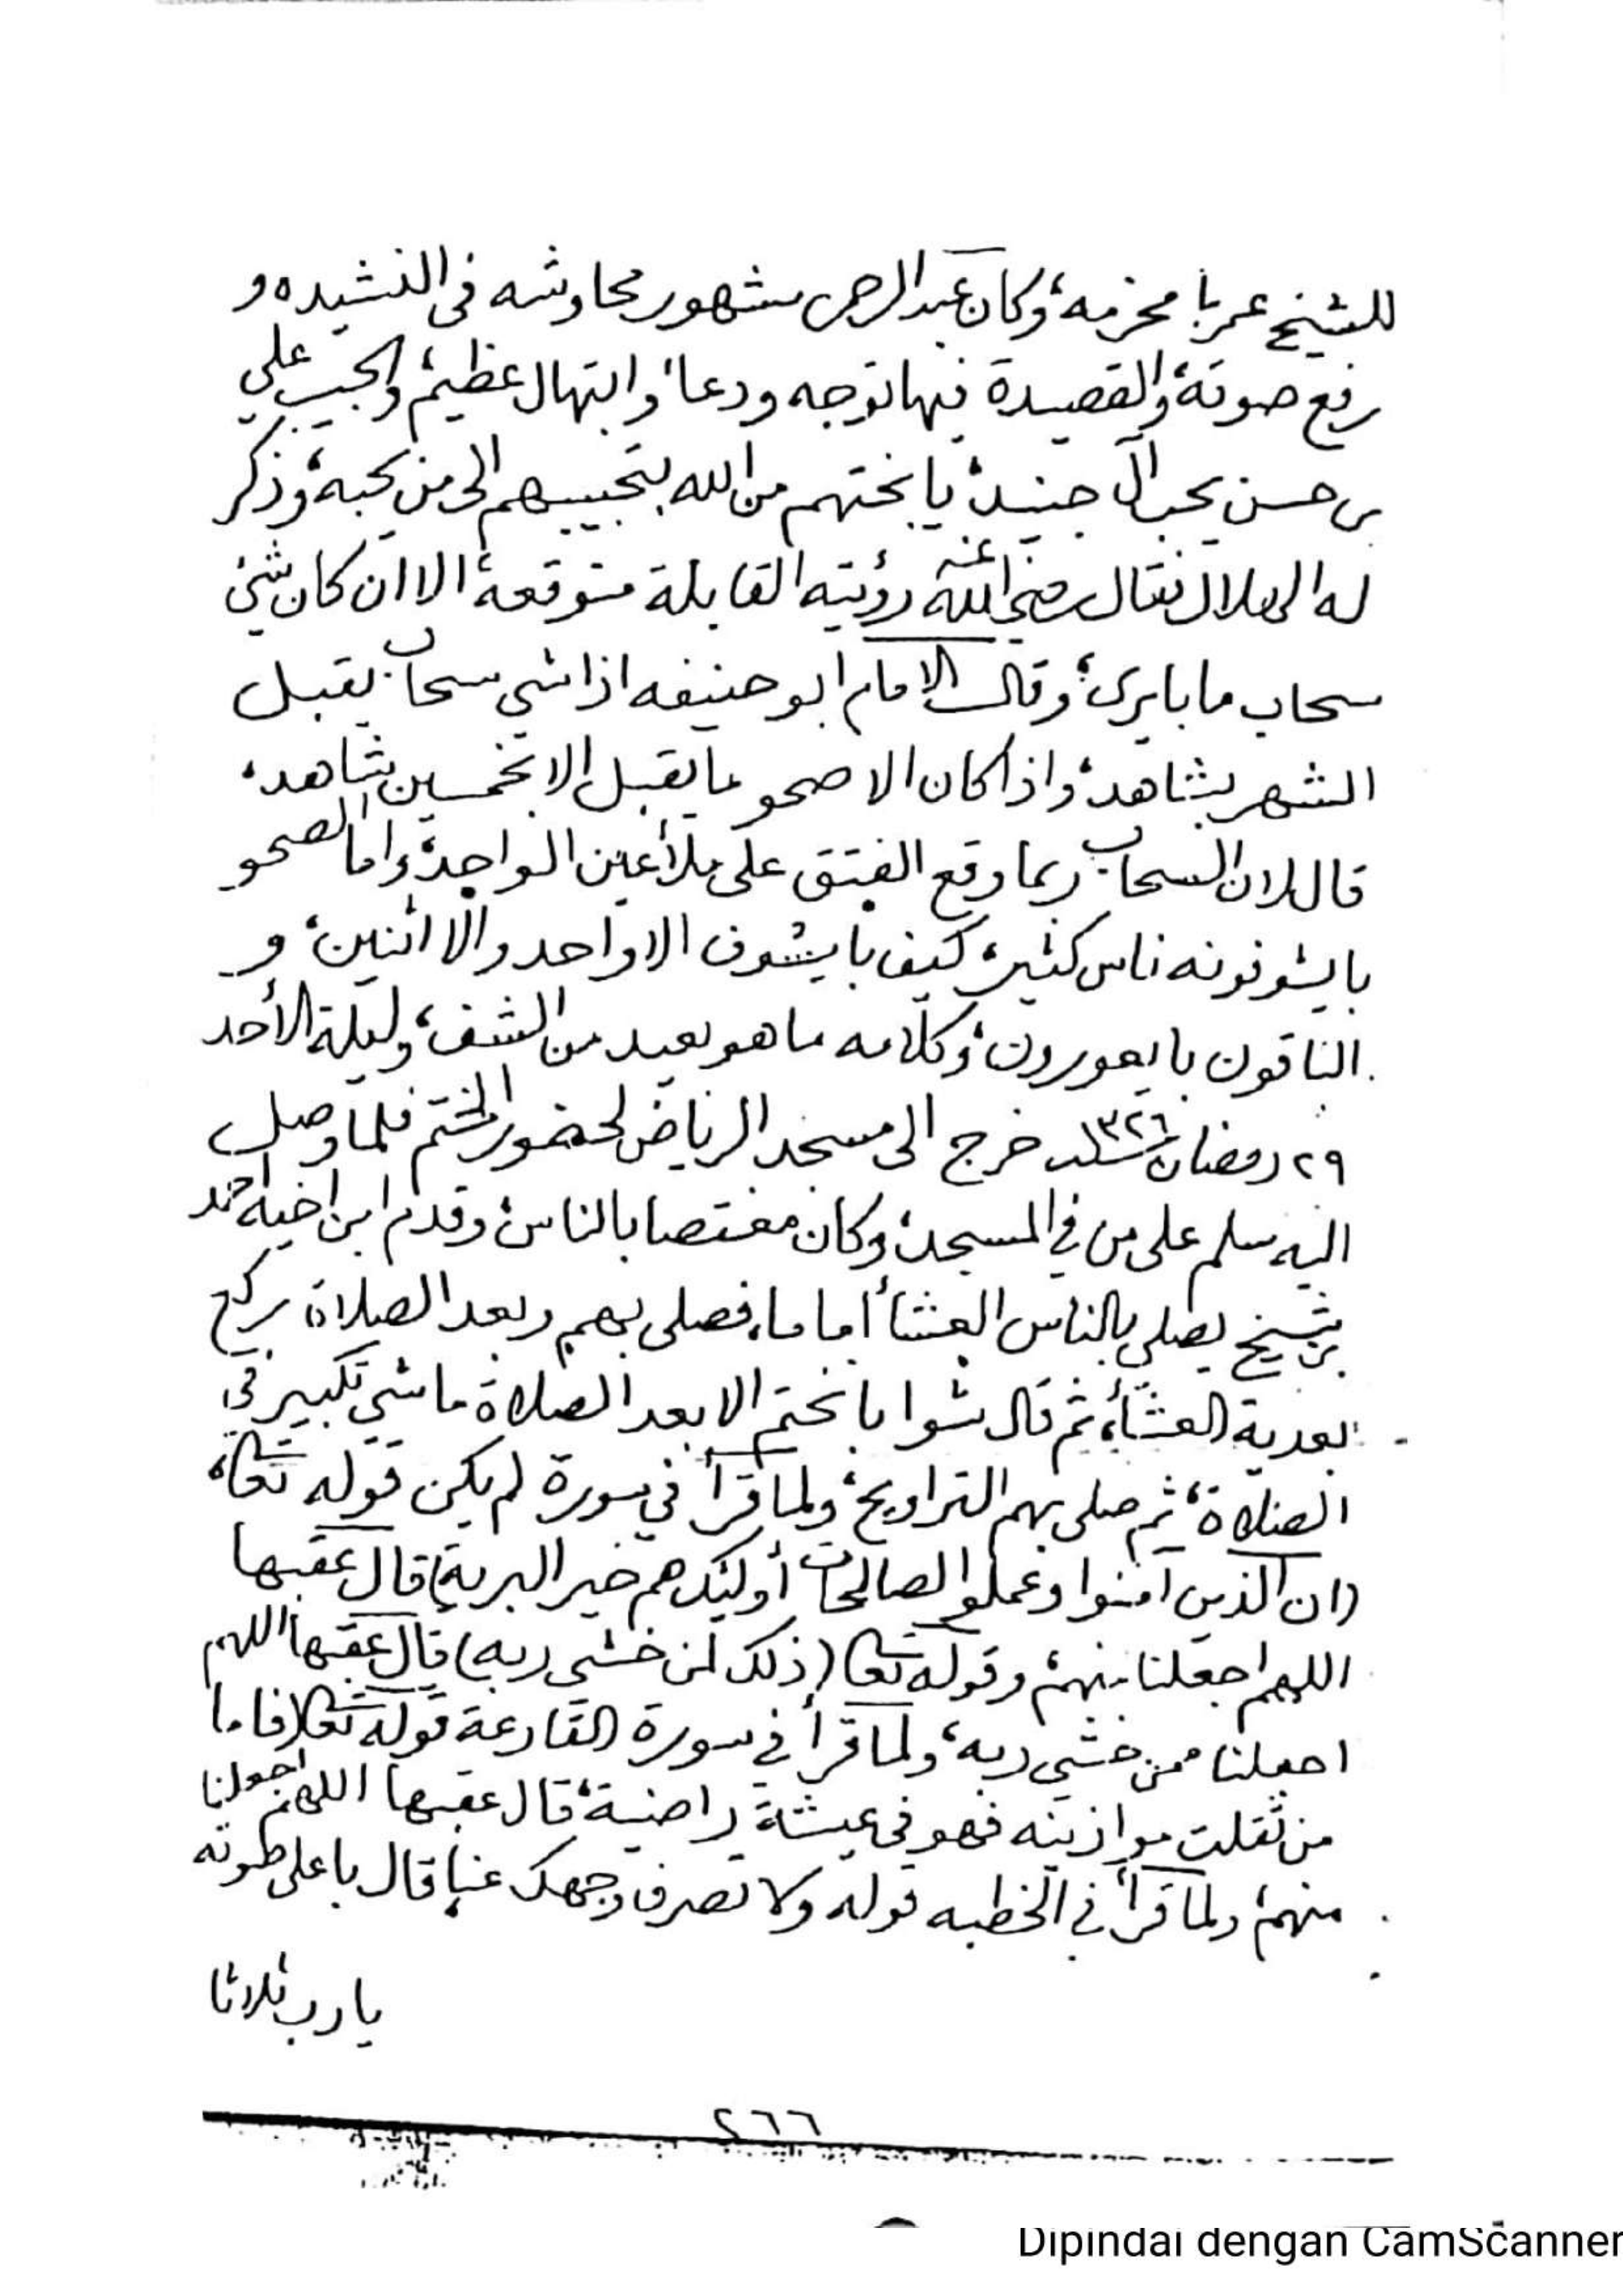 للشيخ عمر با مخرمه، وكان عبد الرحمن مشهور محاوشه في النشيده و
رفع صوته، والقصيدة فيها توجه ودعاء وابتهال عظيم، والحبيب علي
بن حسن يحب آل جنيد، يا بختهم من الله بتحبيبهم إلى من يحبه، وذكر
له الهلال فقال رضي الله عنه رؤيته القابلة متوقعة الا ان كان شي
سحاب ما بايرى، وقال الامام ابو حنيفه اذا شي سحاب يقبل
الشهر بشاهد، واذا كان الا صحو ما يقبل الا بخمسين شاهد،
قال لان السحاب ربما وقع الفتق على ملأ عين الواحد، واما الصحو
با يشوفونه ناس كثير، كيف با يشوف الا واحد والا اثنين، و
الناقون با يعورون، وكلامه ما هو بعيد من الشف، وليلة الأحد
٢٩ رمضان سنة ١٣٢٦ خرج الى مسجد الرياض لحضور الختم فلما وصل
اليه سلم على من في المسجد، وكان مغتصا بالناس، وقدم ابن اخيه احمد
بن شيخ يصلي بالناس العشاء أماما، فصلى بهم وبعد الصلاة، ركع
بعدية العشاء، ثم قال شوا با نختم الا بعد الصلاة ما شي تكبير في
الصلاة، ثم صلى بهم التراويح، ولما قرأ في سورة لم يكن قوله تعالى،
(ان الذين آمنوا وعملوا الصالحات أولئك هم خير البرية) قال عقبها
اللهم اجعلنا منهم، وقوله تعالى (ذلك لمن خشي ربه) قال عقبها اللهم
اجعلنا ممن خشي ربه، ولما قرأ في سورة القارعة قوله تعالى (فاما
من ثقلت موازينه فهو في عيشة راضية، قال عقبها اللهم اجعلنا
منهم، ولما قرأ في الخطبه قوله ولا تصرف وجهك عنا قال باعلى صوته
يا رب ثلاثا
٢٦٦
Dipindai dengan CamScanner